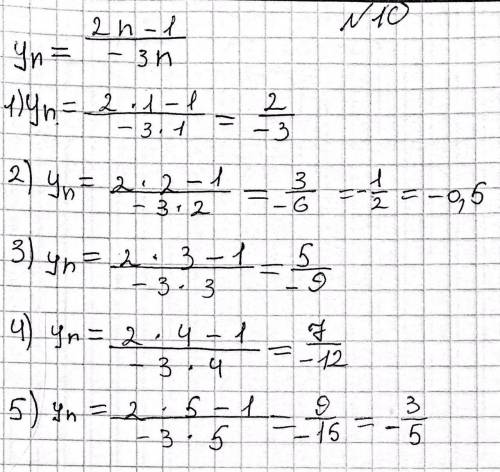 №10
yₙ = (2n − 1)/(− 3n)
1) yₙ. = (2 · 1 − 1)/(− 3 · 1) = 2/(−3)
2) yₙ = (2 · 2 − 1)/(− 3 · 2) = 3/(−6) = −1/2 = −0,5
3) yₙ = (2 · 3 − 1)/(− 3 · 3) = 5/(−9)
4) yₙ = (2 · 4 − 1)/(− 3 · 4) = 7/(−12)
5) yₙ = (2 · 5 − 1)/(− 3 · 5) = 9/(−15) = 3/(−5)